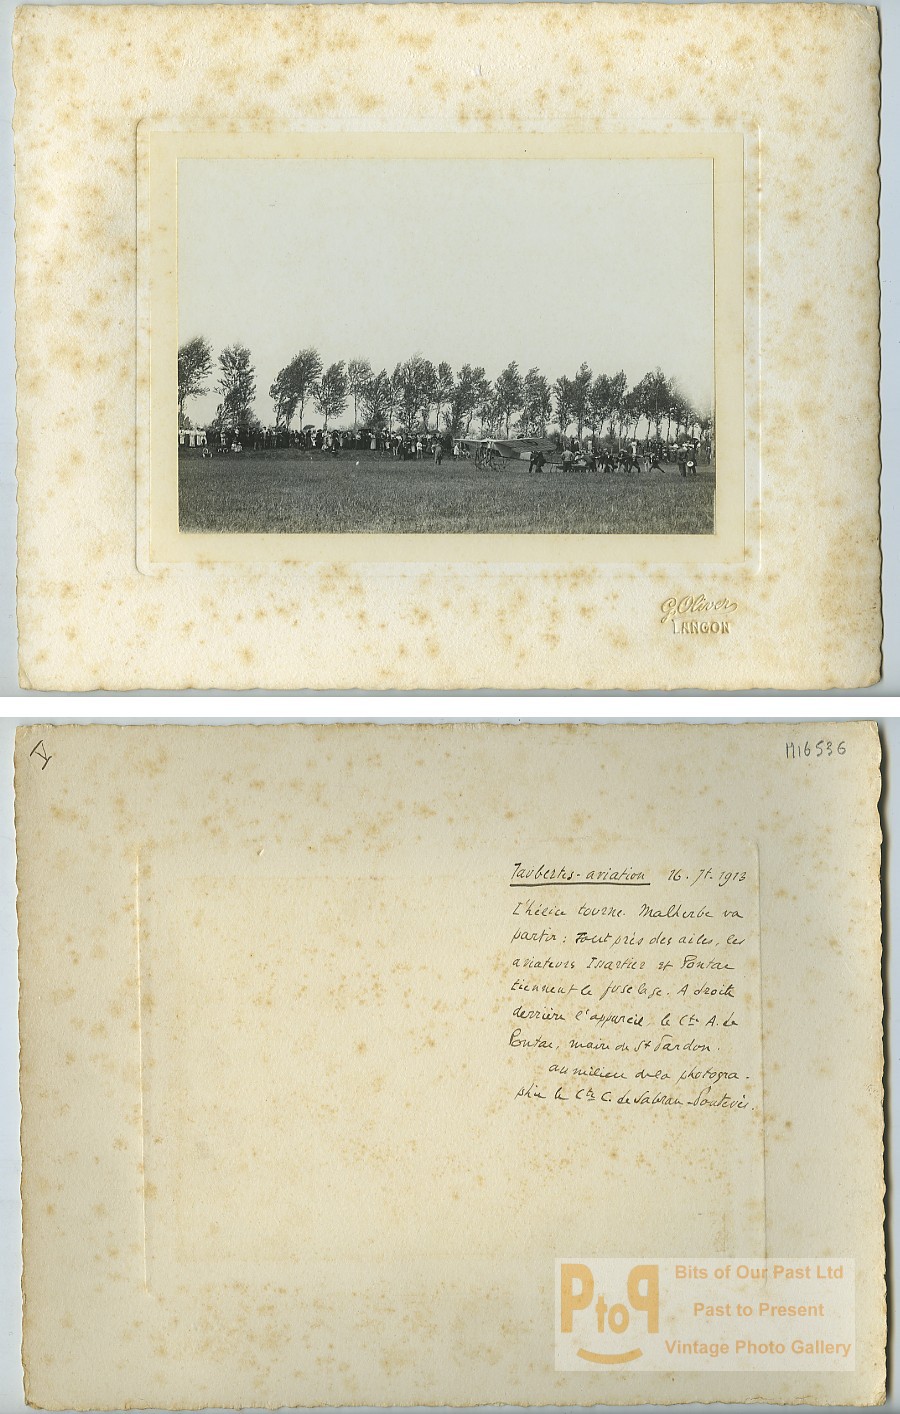 G. Oliver
LANGON
V
M16536
Jaubertes-aviation 16. 7t. 1913
L'hélice tourne. Malherbe va
partir: Tout près des ailes, les
aviateurs Issartier et Pontac
tiennent le fuselage. A droite
derrière l'appareil, le Cte A. de
Pontac, maire de St Pardon.
au milieu de la photogra-
phie le Cte C. de Sabran-Pontevès.
PtoP
Bits of Our Past Ltd
Past to Present
Vintage Photo Gallery